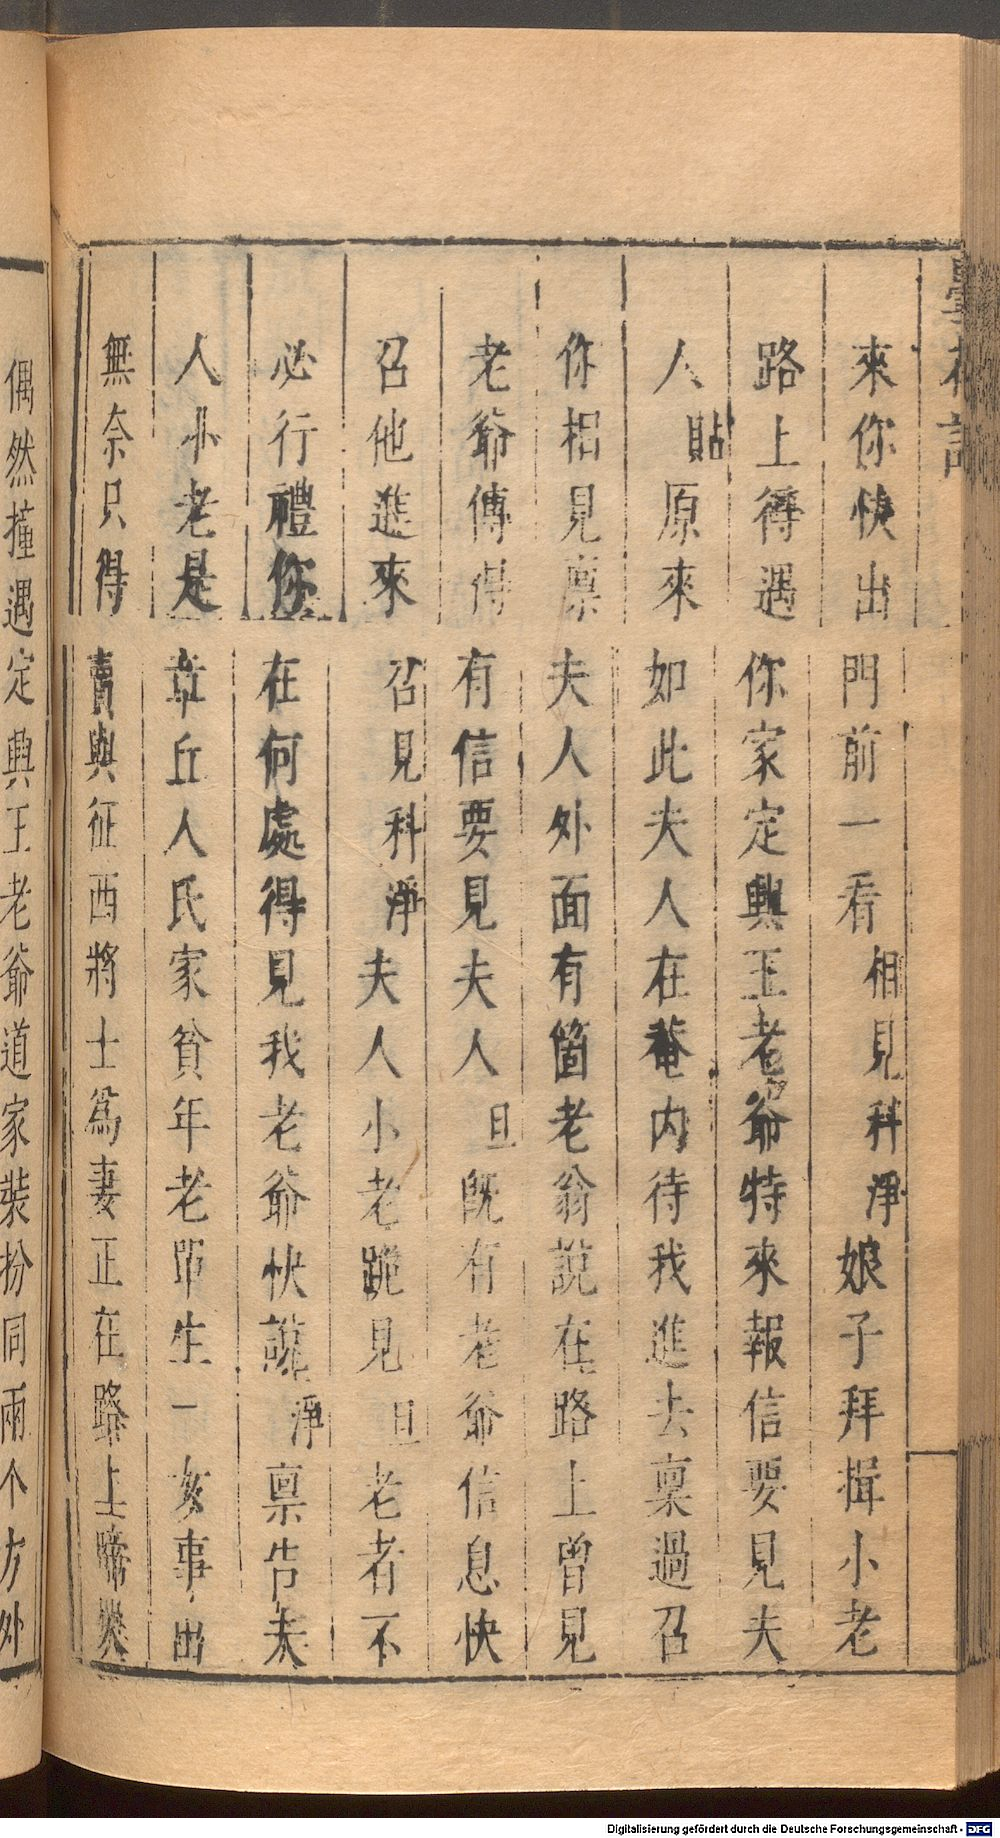 曇花記
來你快出門前一看相見科淨娘子拜揖小老
路上得遇你家定興王老爺特來報信要見夫
人貼原來如此夫人在菴內待我進去稟過召
你相見稟夫人外面有箇老翁說在路上曾見
老爺傳得有信要見夫人旦既有老爺信息快
召他進來召見科淨夫人小老跪見旦老者不
必行禮你在何處得見我老爺快說淨稟告夫
人小老是章丘人氏家貧年老即生一女事出
無奈只得賣與征西將士爲妻正在路上啼哭
偶然撞遇定興王老爺道家裝扮同兩个方外
Digitalisierung gefördert durch die Deutsche Forschungsgemeinschaft - DFG